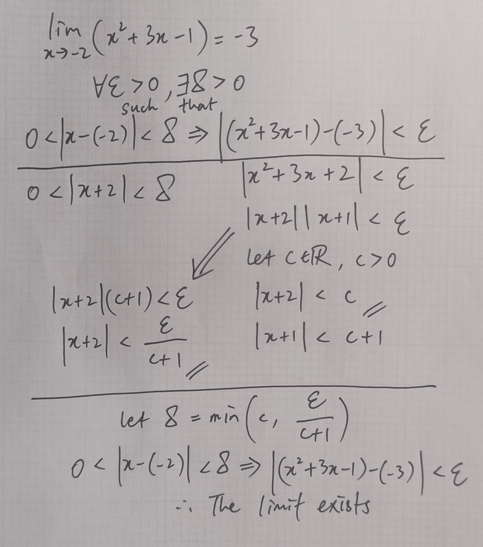 lim x→-2 (x² + 3x - 1) = -3
∀ε > 0, ∃δ > 0
such that
0 < |x - (-2)| < δ ⇒ |(x² + 3x - 1) - (-3)| < ε
0 < |x + 2| < δ |x² + 3x + 2| < ε
|x + 2| |x + 1| < ε
let c ∈ ℝ, c > 0
|x + 2| (c + 1) < ε |x + 2| < c
|x + 2| < ε/(c + 1) |x + 1| < c + 1
let δ = min(c, ε/(c + 1))
0 < |x - (-2)| < δ ⇒ |(x² + 3x - 1) - (-3)| < ε
∴ The limit exists